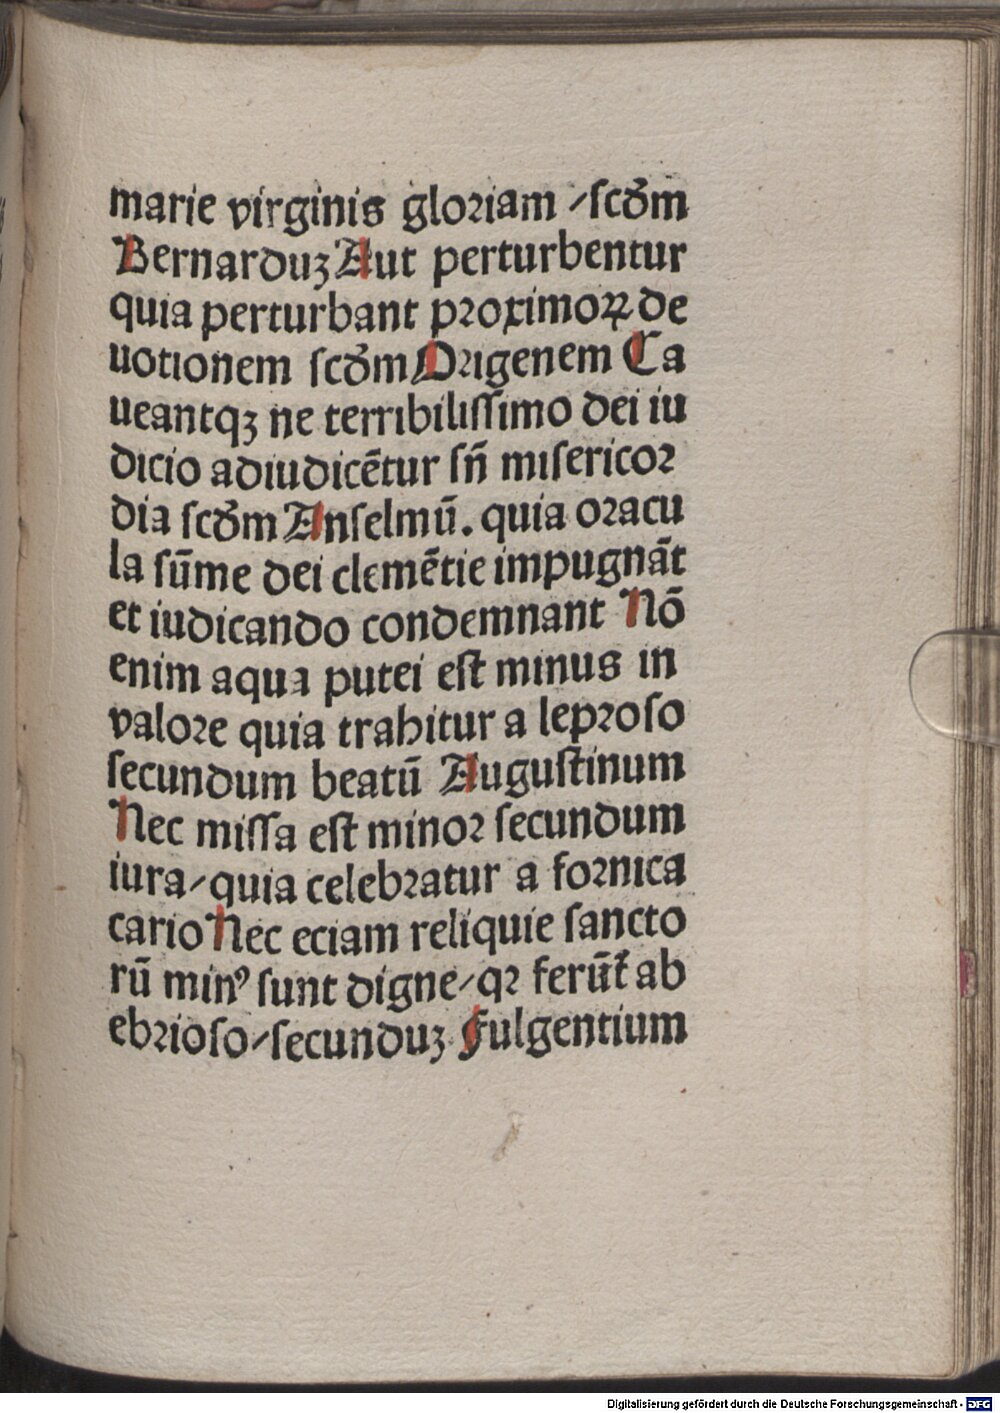 marie virginis gloriam /scďm
Bernarduꝫ Aut perturbentur
quia perturbant proximoꝝ de
uotionem scďm Origenem Ca
ueantqꝫ ne terribilissimo dei iu
dicio adiudicētur sn̄ misericor
dia scďm Anselmū. quia oracu
la sūme dei clemētie impugnāt
et iudicando condemnant Nō
enim aqua putei est minus in
valore quia trahitur a leproso
secundum beatū Augustinum
Nec missa est minor secundum
iura/quia celebratur a fornica
cario Nec eciam reliquie sancto
rū minꝰ sunt digne/qr ferūt̄ ab
ebrioso/secunduꝫ Fulgentium
Digitalisierung gefördert durch die Deutsche Forschungsgemeinschaft - DFG